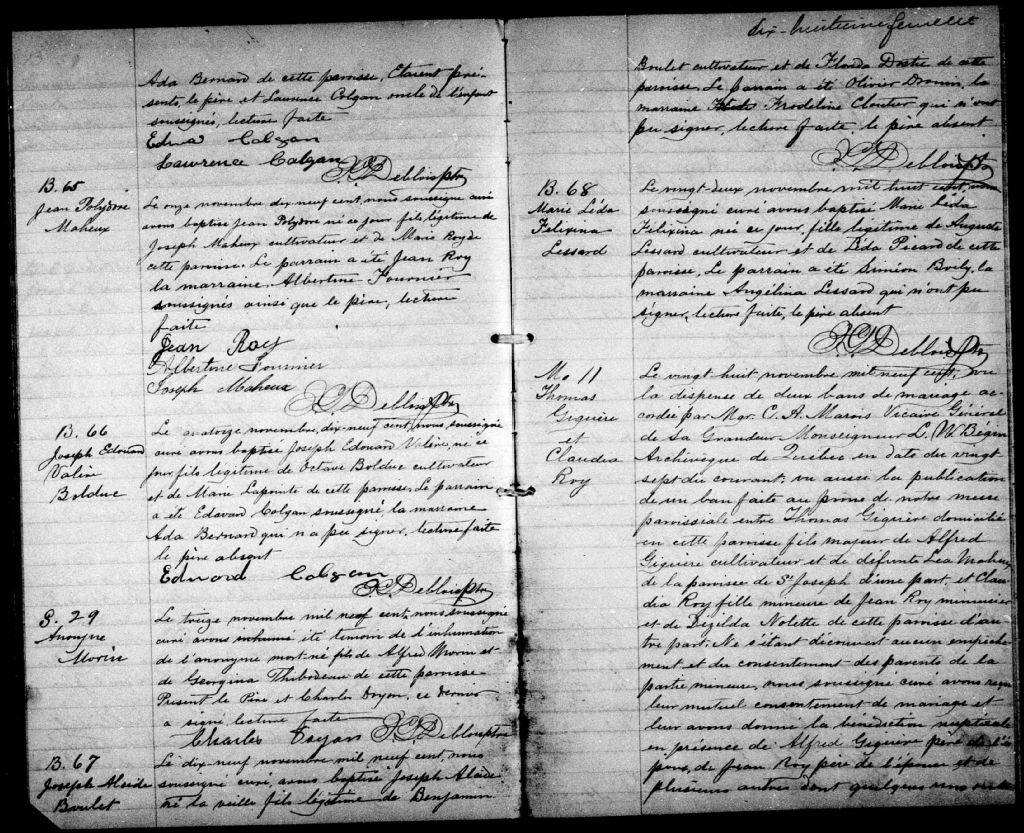 Ada Bernard de cette paroisse, Etaient pré-
sents, le père et Laurence Colgan oncle de l'enfant
soussignés, lecture faite
Edna Colgan
Lawrence Colgan
Deblois ptre
B. 65
Jean Polydore
Maheux
Le onze novembre dix-neuf cent, nous soussigné curé
avons baptisé Jean Polydore né ce jour fils légitime de
Joseph Maheux cultivateur et de Marie Roy de
cette paroisse. Le parrain a été Jean Roy
la marraine Albertine Fournier
soussignés ainsi que le père, lecture
faite
Jean Roy
Albertine Fournier
Joseph Maheux
Deblois ptre
B. 66
Joseph Edouard
Valère
Bolduc
Le quatorze novembre, dix-neuf cent, nous soussigné
curé avons baptisé Joseph Edouard Valère, né ce
jour fils légitime de Octave Bolduc cultivateur
et de Marie Lapointe de cette paroisse. Le parrain
a été Edouard Colgan soussigné, la marraine
Ada Bernard qui n'a pu signer, lecture faite
le père absent
Edward Colgan
Deblois ptre
S. 29
Anonyme
Morin
Le treize novembre mil neuf cent, nous soussigné
curé avons inhumé été témoin de l'inhumation
de l'anonyme mort-né fils de Alfred Morin et
de Georgina Thibodeau de cette paroisse
Present le Père et Charles Doyon, ce dernier
a signé, lecture faite
Charles Doyon Deblois ptre
B. 67
Joseph Alcide
Boulet
Le dix neuf novembre mil neuf cent, nous
soussigné curé avons baptisé Joseph Alcide
né la veille fils légitime de Benjamin
dix-huitième feuillet
Boulet cultivateur et de Florida Dostie de cette
paroisse. Le parrain a été Olivier Drouin, la
marraine Frodeline Cloutier qui n'ont
pu signer, lecture faite, le père absent
Deblois ptre
B. 68
Marie Léda
Félixina
Lessard
Le vingt-deux novembre mil huit cent, nous
soussigné curé avons baptisé Marie Léda
Félixina née ce jour, fille légitime de Auguste
Lessard cultivateur et de Léda Picard de cette
paroisse, Le parrain a été Siméon Boily, la
marraine Angélina Lessard qui n'ont pu
signer, lecture faite, le père absent
Deblois ptre
M. 11
Thomas
Giguère
et
Claudia
Roy
Le vingt huit novembre mil neuf cent, vu
la dispense de deux bans de mariage ac-
cordée par Mgr. C. A. Marois Vicaire Général
de Sa Grandeur Monseigneur L. N. Bégin
Archevêque de Québec en date du vingt
sept du courant, vu aussi la publication
de un ban faite au prône de notre messe
paroissiale entre Thomas Giguère domicilié
en cette paroisse fils majeur de Alfred
Giguère cultivateur et de défunte Léa Maheux
de la paroisse de St Joseph d'une part, et Clau
dia Roy fille mineure de Jean Roy menuisier
et de Dezelda Nolette de cette paroisse d'au
tre part. Ne s'étant découvert aucun empêche
ment et du consentement des parents de la
partie mineure, nous soussigné curé avons reçu
leur mutuel consentement de mariage et
leur avons donné la bénédiction nuptiale
en présence de Alfred Giguère père de l'é
poux, de Jean Roy père de l'épouse et de
plusieurs autres dont quelques uns